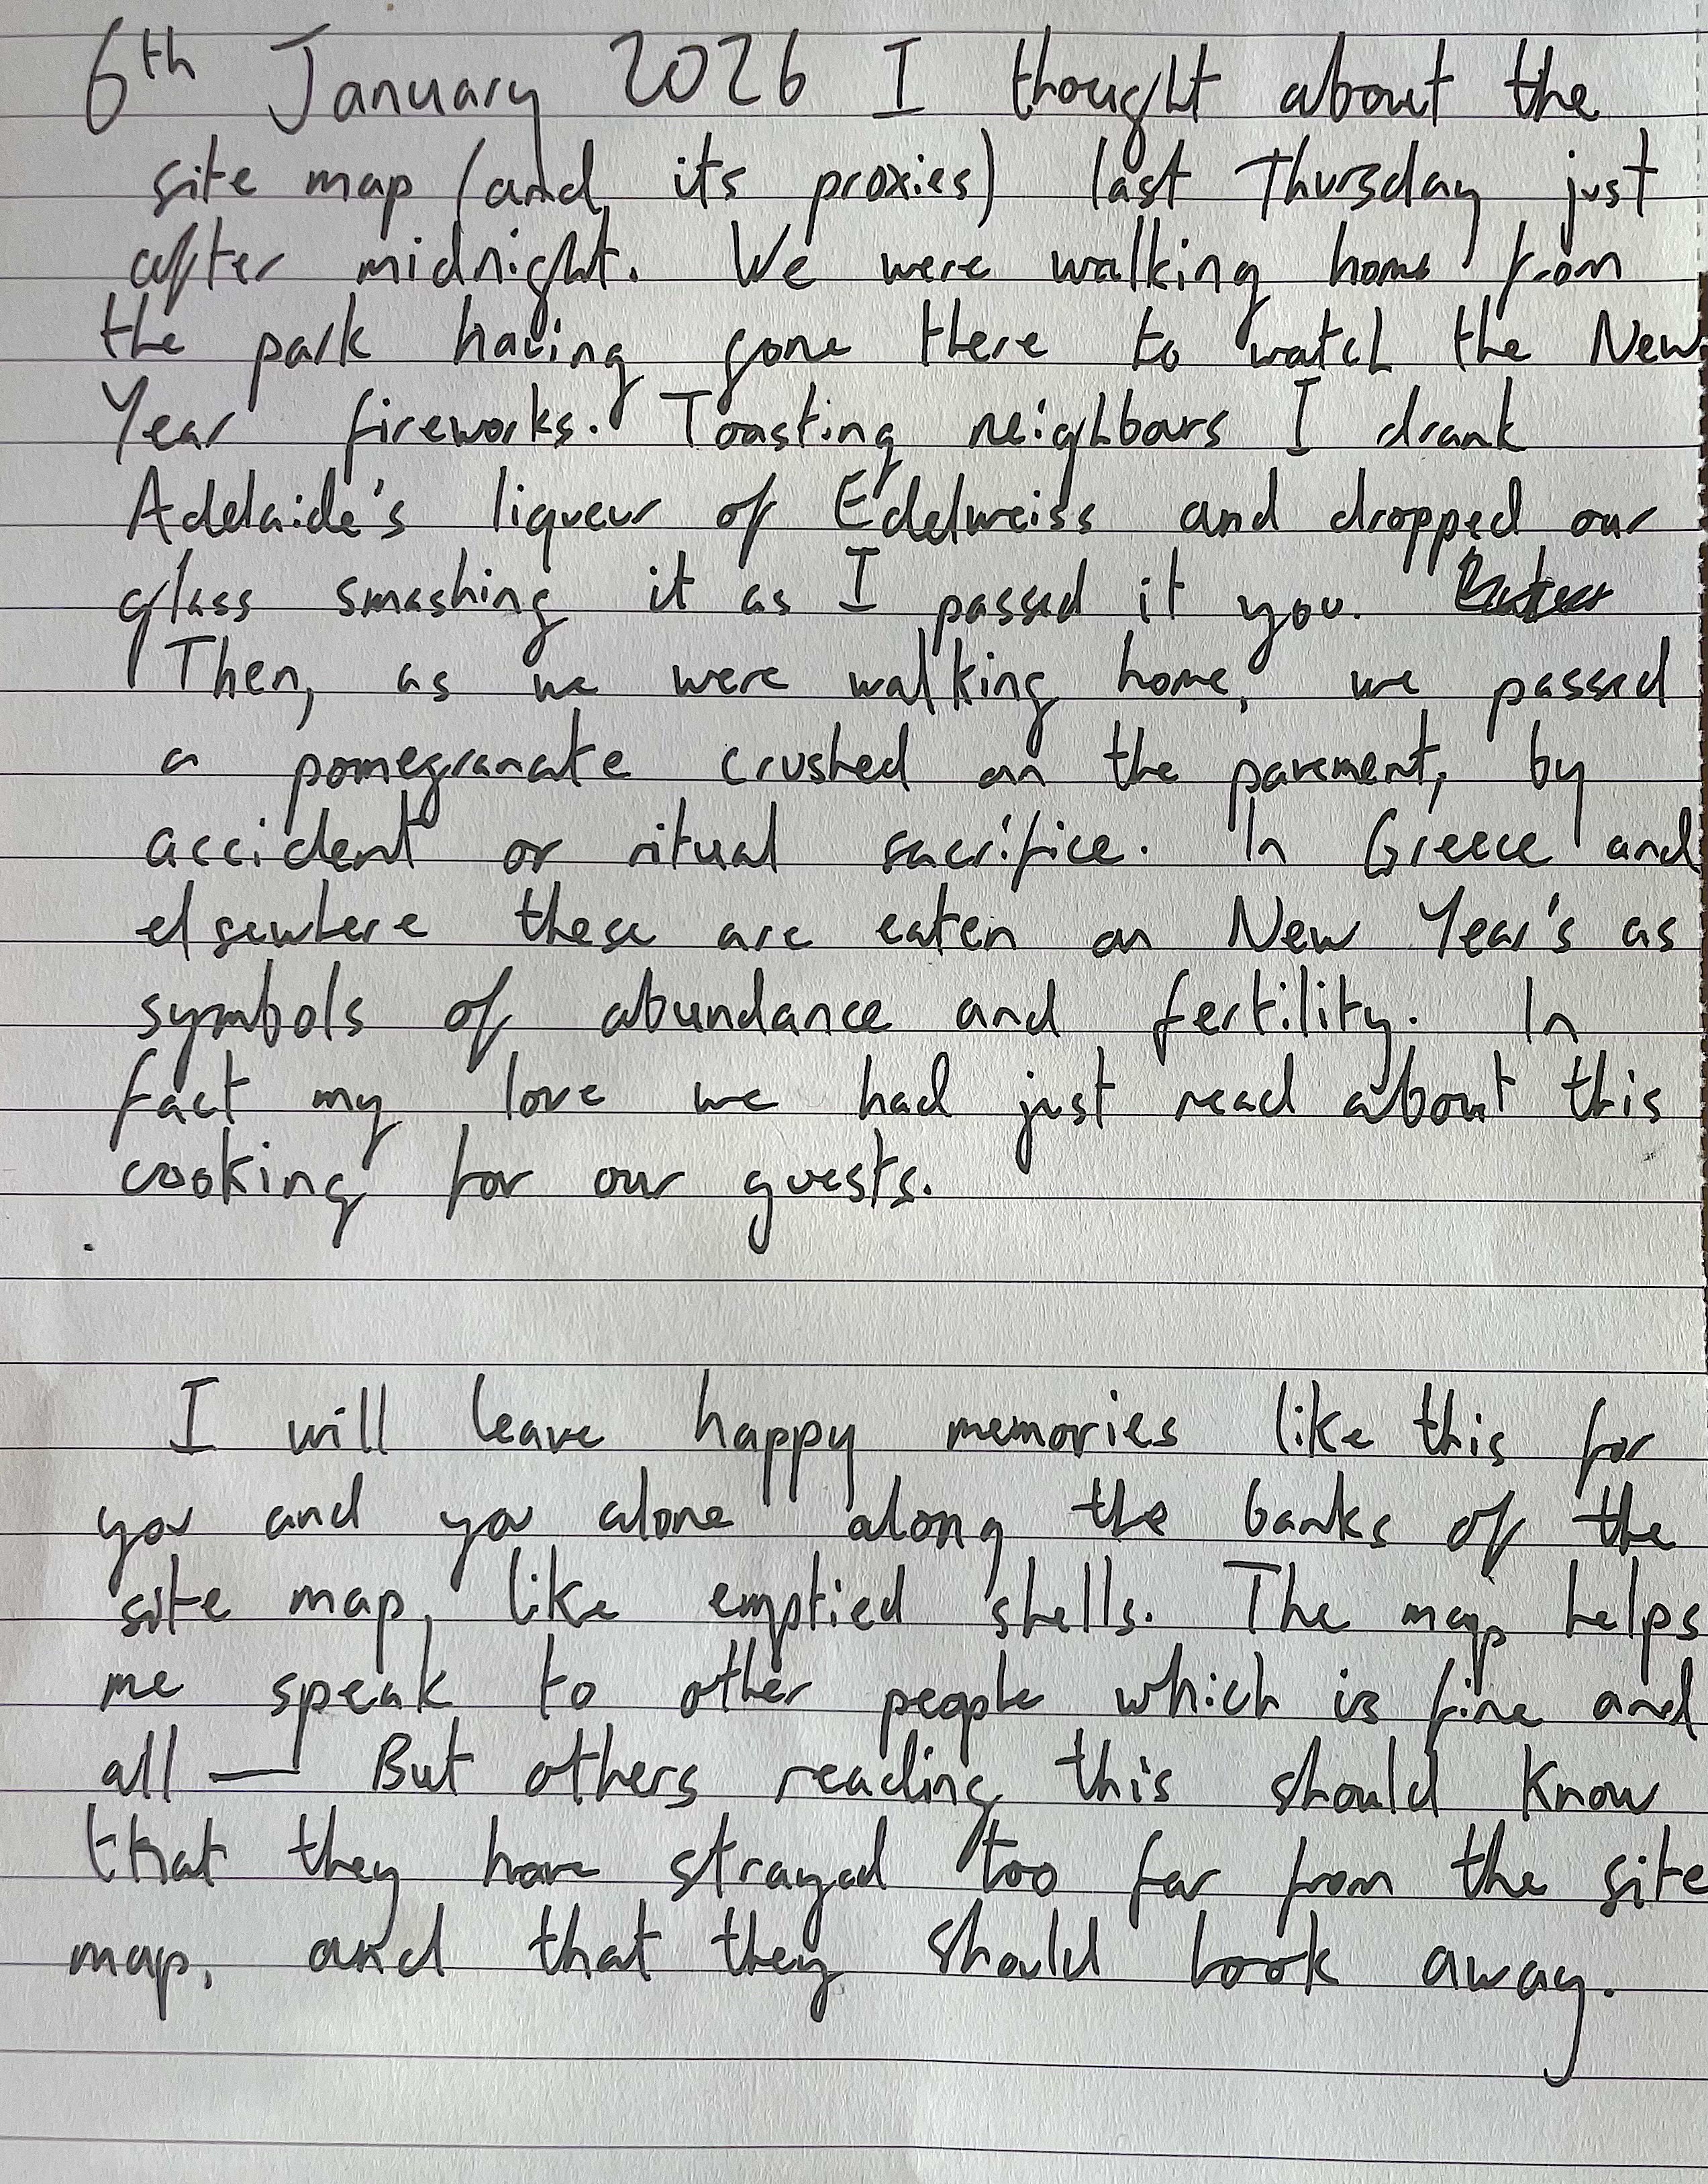 6th January 2026 I thought about the
site map (and its proxies) last Thursday just
after midnight. We were walking home from
the park having gone there to watch the New
Year fireworks. Toasting neighbours I drank
Adelaide's liqueur of Edelweiss and dropped our
glass smashing it as I passed it you.
Then, as we were walking home, we passed
a pomegranate crushed on the pavement, by
accident or ritual sacrifice. In Greece and
elsewhere these are eaten on New Year's as
symbols of abundance and fertility. In
fact my love we had just read about this
cooking for our guests.
I will leave happy memories like this for
you and you alone along the banks of the
site map, like emptied shells. The map helps
me speak to other people which is fine and
all — But others reading this should know
that they have strayed too far from the site
map, and that they should look away.